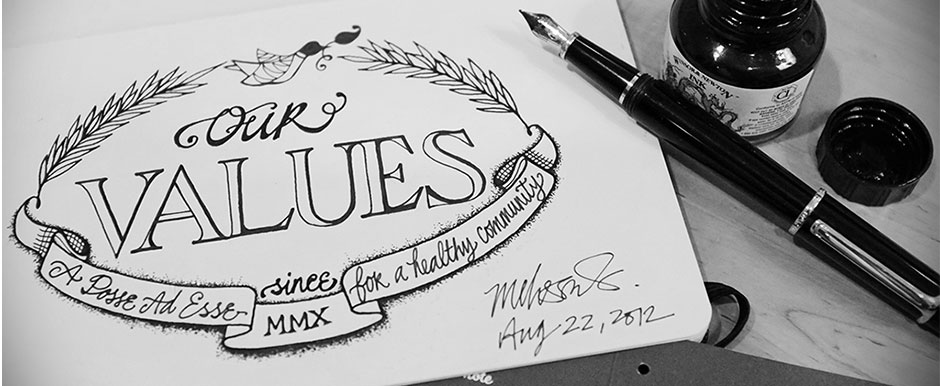 our
VALUES
A Posse Ad Esse
since
MMX
for a healthy community
Aug 22, 2012
WINSOR & NEWTON
INK